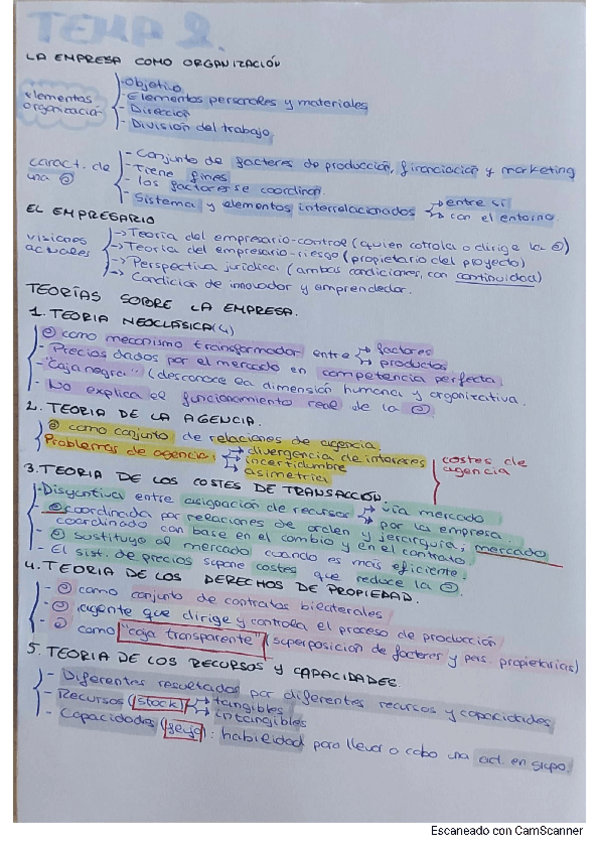 TEMA 2.
LA EMPRESA COMO ORGANIZACIÓN
elementos organización
- Objetivo
- Elementos personales y materiales
- Dirección
- División del trabajo
caract. de una ⓔ
- Conjunto de factores de producción, financiación y marketing
- Tiene fines
- Los factores se coordinan.
- Sistema y elementos interrelacionados → entre sí
→ con el entorno
EL EMPRESARIO
visiones actuales
-> Teoría del empresario-control (quien cotrola o dirige la ⓔ)
-> Teoría del empresario-riesgo (propietario del proyecto)
-> Perspectiva jurídica (ambas condiciones, con continuidad)
-> Condición de innovador y emprendedor.
TEORÍAS SOBRE LA EMPRESA.
1. TEORIA NEOCLÁSICA (4)
- ⓔ como mecanismo transformador entre → factores
→ productos
- Precios dados por el mercado en competencia perfecta.
- "Caja negra" (desconoce la dimensión humana y organizativa.
- No explica el funcionamiento real de la ⓔ.
2. TEORIA DE LA AGENCIA.
- ⓔ como conjunto de relaciones de agencia
Problemas de agencia: → divergencia de intereses
→ incertidumbre
→ asimetría
costes de agencia
3. TEORIA DE LOS COSTES DE TRANSACCIÓN.
- Disyuntiva entre asignación de recursos → vía mercado
→ por la empresa.
- ⓔ coordinada por relaciones de orden y jerarquía; mercado
coordinado con base en el cambio y en el contrato
- ⓔ sustituye al mercado cuando es más eficiente.
- El sist. de precios supone costes que reduce la ⓔ.
4. TEORIA DE LOS DERECHOS DE PROPIEDAD.
- ⓔ como conjunto de contratos bilaterales
- ⓔ, agente que dirige y controla el proceso de producción
- ⓔ como "caja transparente" (superposición de factores y pers. propietarias)
5. TEORIA DE LOS RECURSOS Y CAPACIDADES.
- Diferentes resultados por diferentes recursos y capacidades
- Recursos (stock) → tangibles
→ intangibles
- Capacidades (flujo): habilidad para llevar a cabo una act. en grupo.
Escaneado con CamScanner